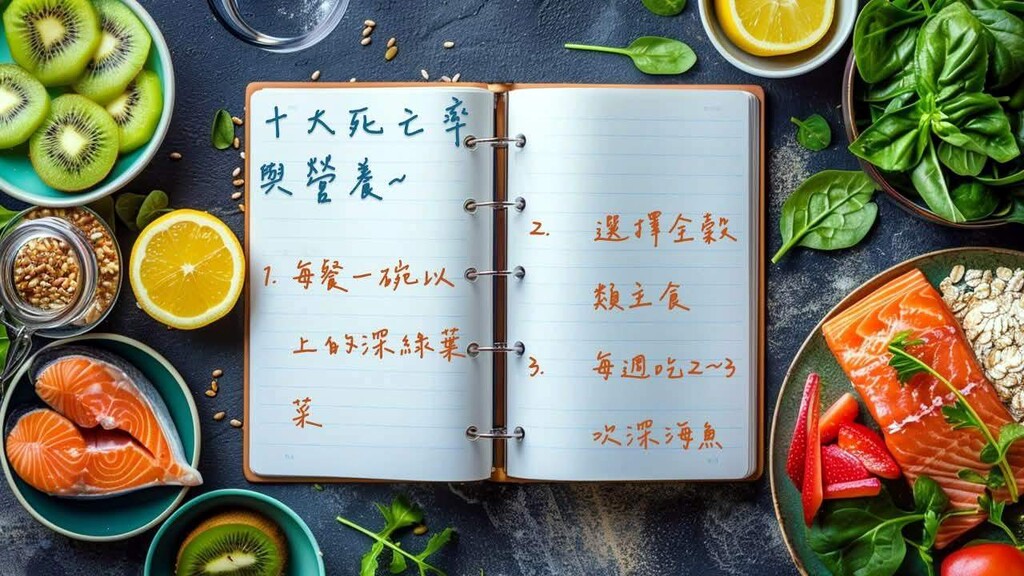 十大死亡率
與營養~
1. 每餐一碗以
上的深綠葉
菜
2. 選擇全穀
類主食
3. 每週吃2~3
次深海魚